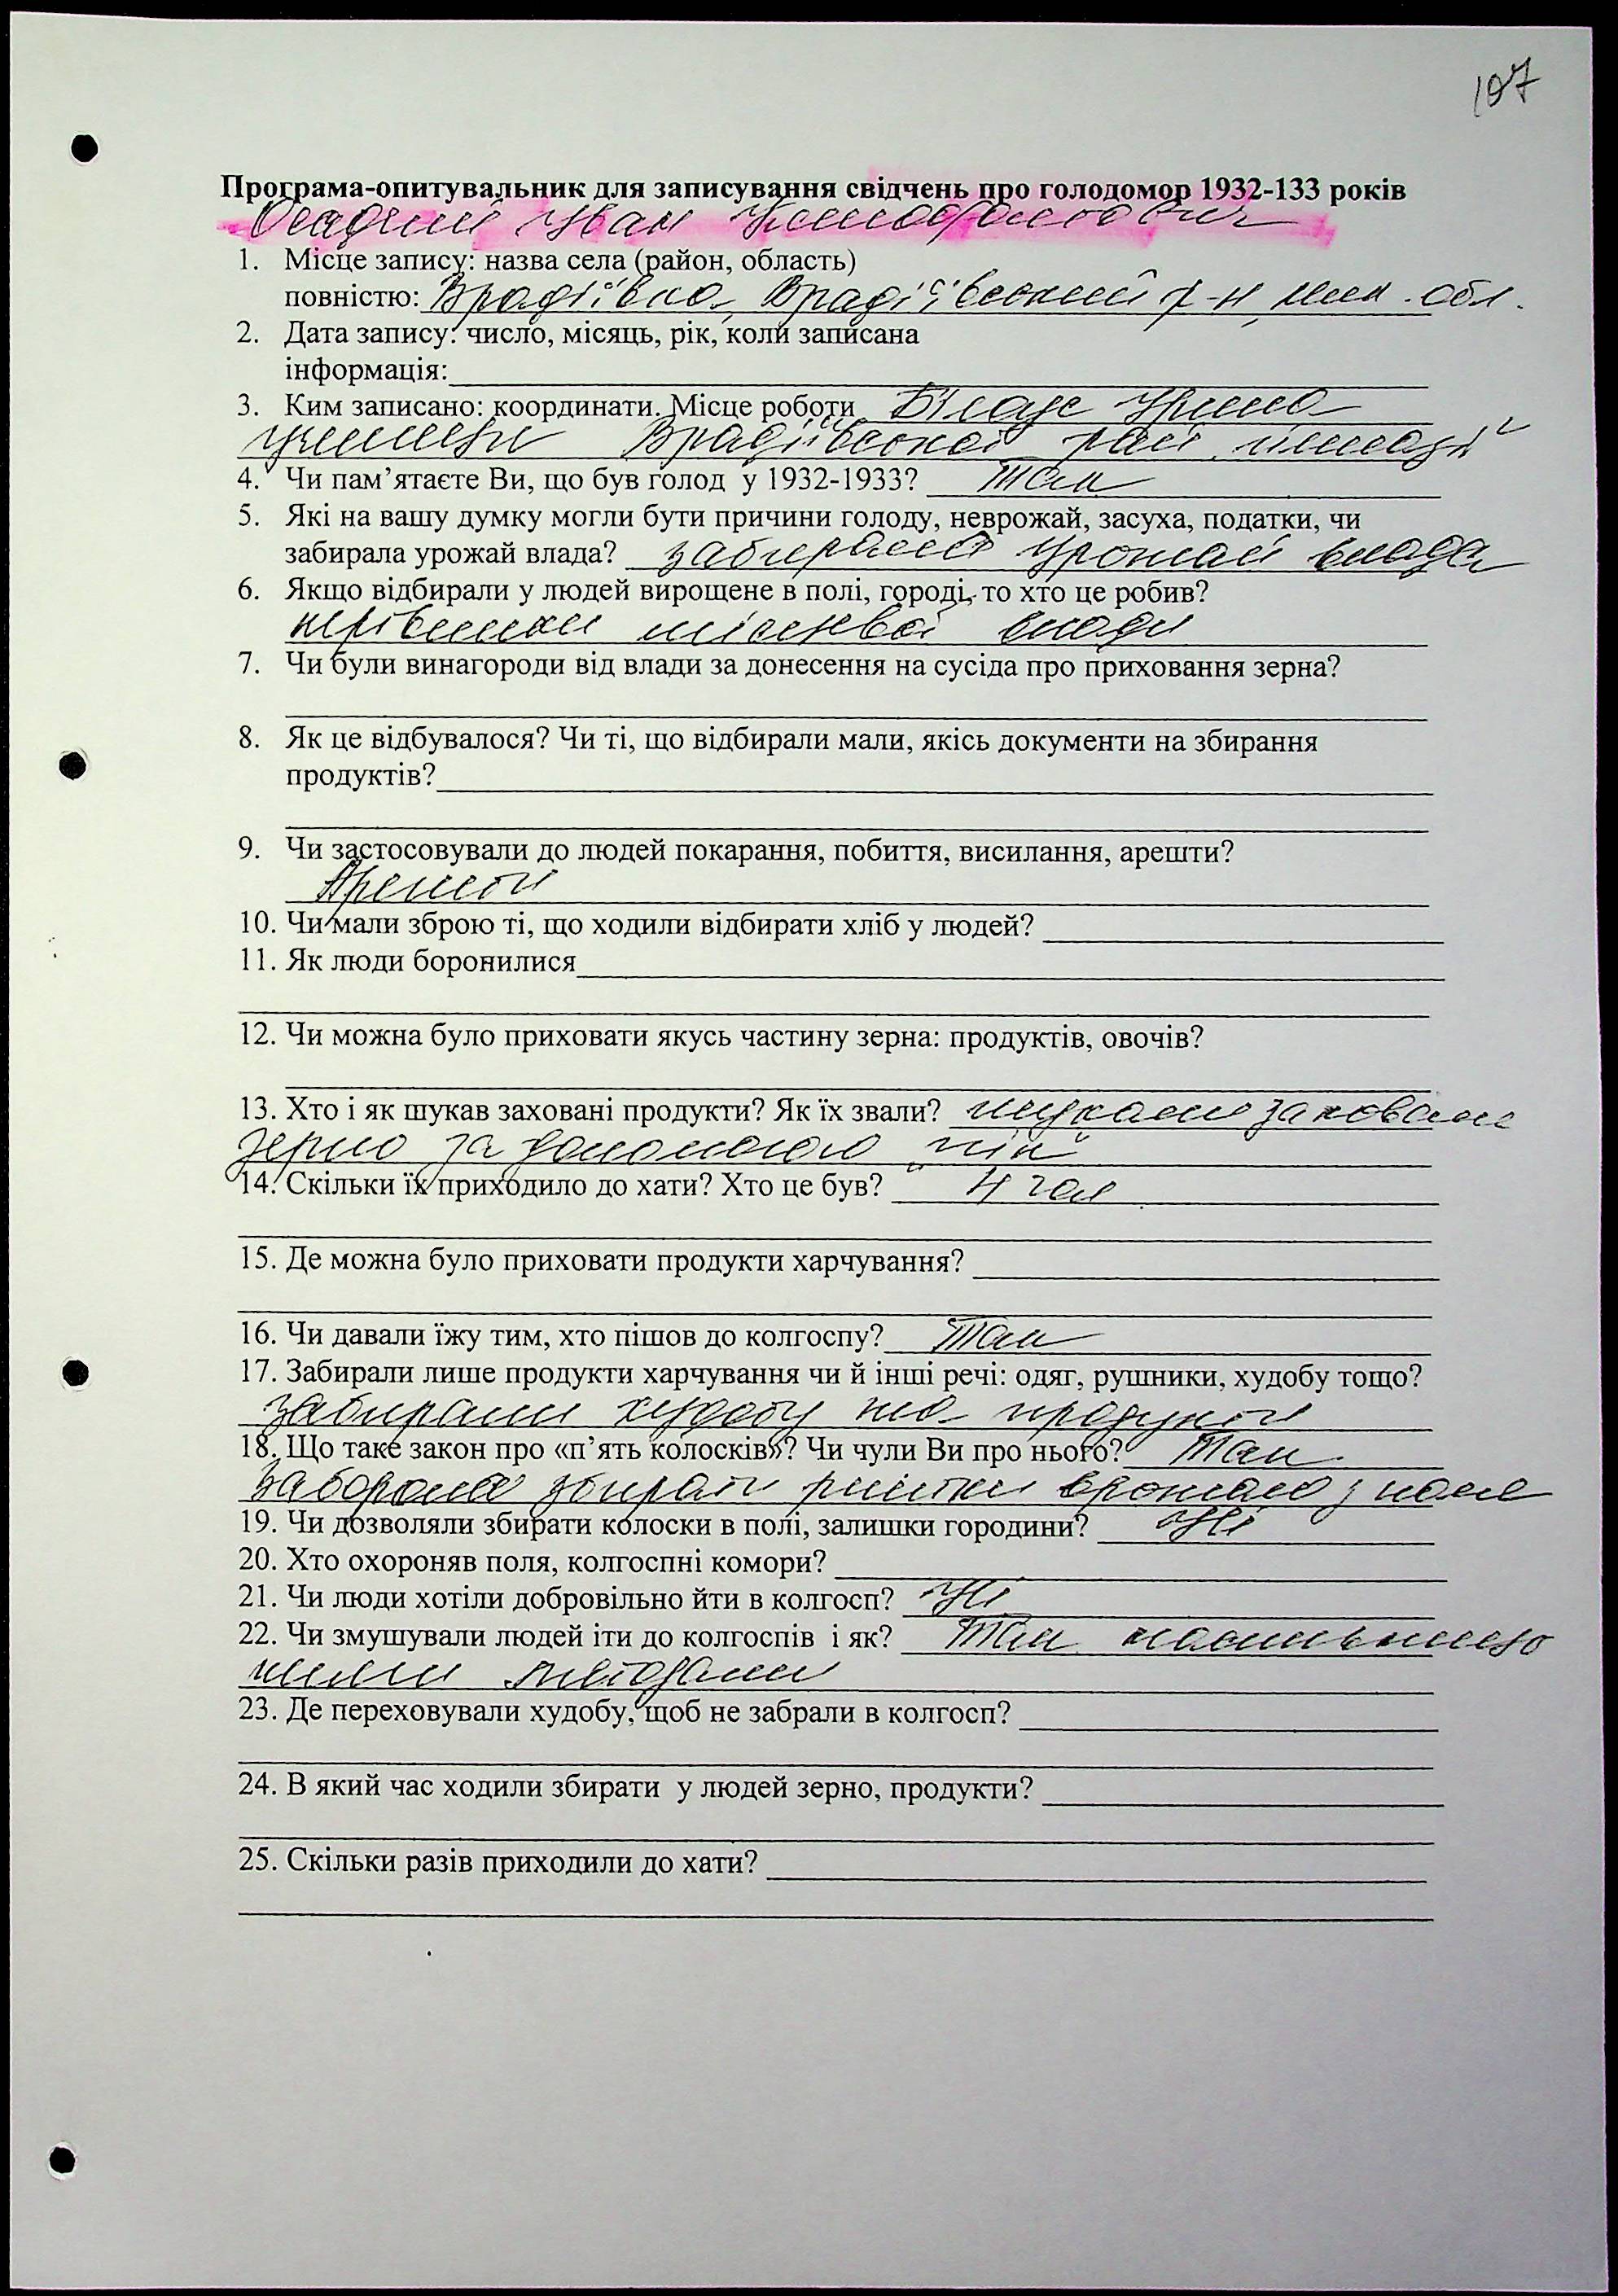 107
Програма-опитувальник для записування свідчень про голодомор 1932-133 років
Осадчий Іван
1. Місце запису: назва села (район, область)
повністю: Врадіївка, Врадіївський р-н, мик. обл.
2. Дата запису: число, місяць, рік, коли записана
інформація:
3. Ким записано: координати. Місце роботи Білаус Ірина
учениця Врадіївської гімназії
4. Чи пам’ятаєте Ви, що був голод у 1932-1933? Так
5. Які на вашу думку могли бути причини голоду, неврожай, засуха, податки, чи
забирала урожай влада? забирала урожай влада
6. Якщо відбирали у людей вирощене в полі, городі, то хто це робив?
керівники місцевої влади
7. Чи були винагороди від влади за донесення на сусіда про приховання зерна?
8. Як це відбувалося? Чи ті, що відбирали мали, якісь документи на збирання
продуктів?
9. Чи застосовували до людей покарання, побиття, висилання, арешти?
Арешти
10. Чи мали зброю ті, що ходили відбирати хліб у людей?
11. Як люди боронилися
12. Чи можна було приховати якусь частину зерна: продуктів, овочів?
13. Хто і як шукав заховані продукти? Як їх звали? шукали заховане
зерно за допомогою "пік"
14. Скільки їх приходило до хати? Хто це був? 4 чол
15. Де можна було приховати продукти харчування?
16. Чи давали їжу тим, хто пішов до колгоспу? Так
17. Забирали лише продукти харчування чи й інші речі: одяг, рушники, худобу тощо?
забирали худобу та продукти
18. Що таке закон про «п’ять колосків»? Чи чули Ви про нього? Так.
Заборона збирати рештки врожаю з поля
19. Чи дозволяли збирати колоски в полі, залишки городини? Ні
20. Хто охороняв поля, колгоспні комори?
21. Чи люди хотіли добровільно йти в колгосп? Ні
22. Чи змушували людей іти до колгоспів і як? Так насильниць
кими методами
23. Де переховували худобу, щоб не забрали в колгосп?
24. В який час ходили збирати у людей зерно, продукти?
25. Скільки разів приходили до хати?